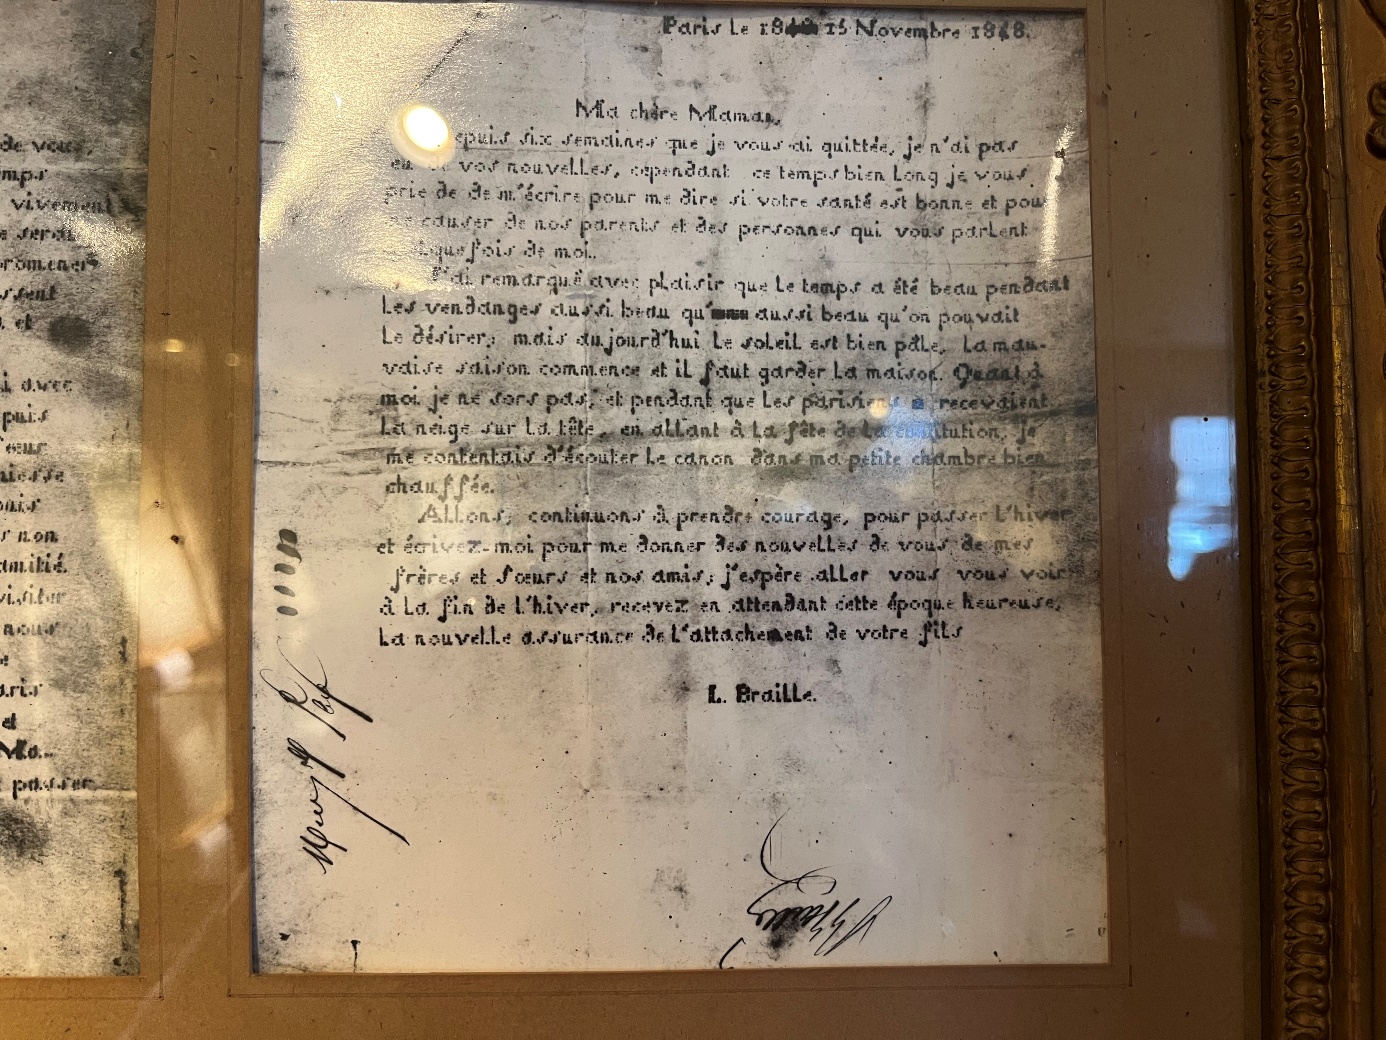 de vous,
mps
vivement
e serai
promener
ssent
et
i avec
puis
sœurs
niesse
puis
s non
amitié.
visiter
nous
aris
et
Ma..
passer
Paris le 18 15 Novembre 1848.
Ma chère Maman,
epuis six semaines que je vous ai quittée, je n'ai pas
eu de vos nouvelles, cependant ce temps bien long je vous
prie de de m'écrire pour me dire si votre santé est bonne et pour
me causer de nos parents et des personnes qui vous parlent
quelquefois de moi.
J'ai remarqué avec plaisir que le temps a été beau pendant
les vendanges aussi beau qu' aussi beau qu'on pouvait
le désirer, mais aujourd'hui le soleil est bien pâle, la mau-
vaise saison commence et il faut garder la maison. Quant à
moi je ne sors pas, et pendant que les parisiens recevaient
la neige sur la tête, en allant à la fête de la constitution, je
me contentais d'écouter le canon dans ma petite chambre bien
chauffée.
Allons, continuons à prendre courage, pour passer l'hiver
et écrivez-moi pour me donner des nouvelles de vous de mes
frères et sœurs et nos amis; j'espère aller vous vous voir
à la fin de l'hiver, recevez en attendant cette époque heureuse,
la nouvelle assurance de l'attachement de votre fils
L. Braille.